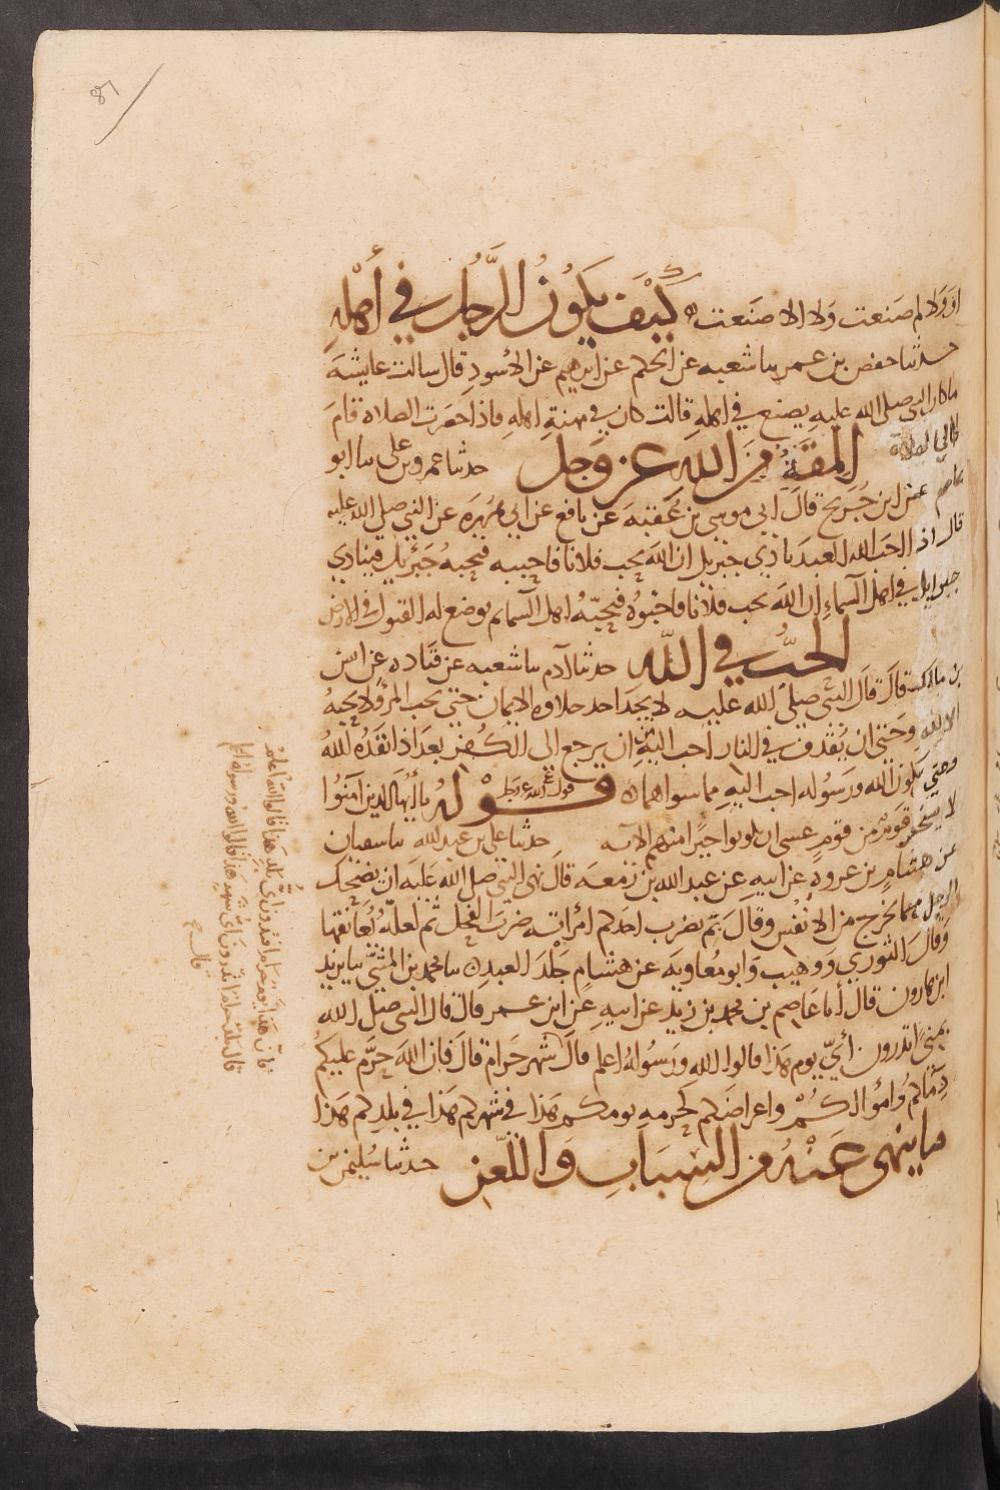 او ولا لم صنعت ولا الا صنعت كيف يكون الرجل في أهله
حدثنا حفص بن عمر سا شعبه عن الحكم عن ابرهيم عن الاسود قال سالت عايشة
ما كان النبي صلى الله عليه يصنع في اهله قالت كان في مهنة اهله فاذا حضرت الصلاة قام
الى الصلاة المقة من الله عز وجل حدثنا عمرو بن على سا ابو
عاصم عن ابن جريج قال موسى بن عقبة عن نافع عن ابي هريرة عن النبي صلى الله عليه
قال اذا احب الله العبد نادى جبريل ان الله يحب فلانا فاحببه فيحبه جبرئيل فينادي
جبرايل في اهل السماء ان الله يحب فلانا فاحبوه فيحبه اهل السما ثم يوضع له القبول في الارض
الحب في الله حدثنا آدم سا شعبه عن قتاده عن انس
بن مالك قال قال النبي صلى الله عليه لا يجد احد حلاوه الايمان حتى يحب المرء لا يحبه
الا لله وحتى ان يقذف في النار احب اليه من ان يرجع الى الكفر بعد اذ انقذه الله
وحتى يكون الله ورسوله احب اليه مما سواهما قوله يا أيها الذين آمنوا
لا يسخر قوم من قوم عسى ان يكونوا خيرا منهم الآية حدثنا على بن عبد الله سا سفيان
عن هشام بن عروة عن ابيه عن عبد الله بن زمعة قال نهى النبي صلى الله عليه ان يضحك
الرجل مما يخرج من الانفس وقال بم يضرب احدكم امرأته ضرب الفحل ثم لعله يعانقها
وقال الثوري ووهيب وابو معاوية عن هشام جلد العبد سا محمد بن المثنى سا يزيد
ابن هارون قال أنا عاصم بن محمد بن زيد عن ابيه عن ابن عمر قال قال النبى صلى الله
بمنى اتدرون أي يوم هذا قالوا الله ورسوله اعلم قال شهر حرام قال فان الله حرم عليكم
دماكم واموالكم واعراضكم كحرمه يومكم هذا في شهركم هذا في بلدكم هذا
ما ينهى عنه من السباب واللعن حدثنا سليمن بن
قال فان هذا يوم حرام افتدرون اي بلد هذا قالوا الله ورسوله اعلم
قال بلد حرام اتدرون اي شهر هذا قالوا الله ورسوله اعلم
قال